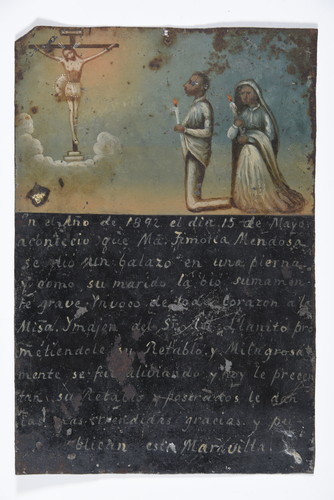 En el Año de 1892 el dia 15 de Mayo
acontecio que Ma. Mendosa
se dio un balazo en una pierna
y como su marido la bio sumamen
te grave Invoco de todo corazon a la
Misa. Imajen del Sr. del Llanito pro
metiendole su Retablo. y Milagrosa
mente se fue alibiando y hoy le presen
tan su Retablo y postrados le dan
las gracias y pu
blican esta Maravilla.